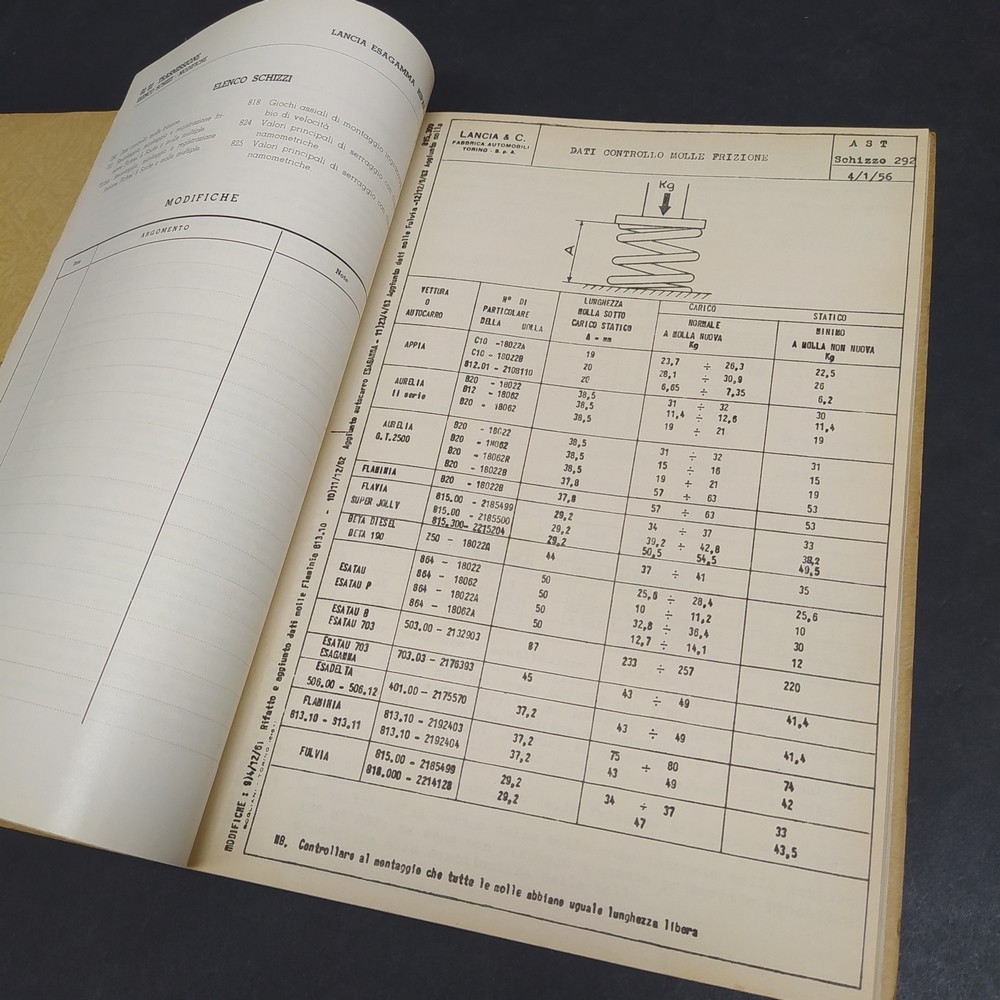 LANCIA ESAGAMMA
TRASMISSIONE
ELENCO SCHIZZI
818 Giochi assiali di montaggio
bio di velocità
824 Valori principali di serraggio con
namometriche
825 Valori principali di serraggio con
namometriche
MODIFICHE
ARGOMENTO
Note
LANCIA & C.
FABBRICA AUTOMOBILI
TORINO - S. p. A.
DATI CONTROLLO MOLLE FRIZIONE
A S T
Schizzo 292
4/1/56
Kg
A
VETTURA
O
AUTOCARRO
N° DI
PARTICOLARE
DELLA MOLLA
LUNGHEZZA
MOLLA SOTTO
CARICO STATICO
A = mm
CARICO STATICO
NORMALE
A MOLLA NUOVA
Kg
MINIMO
A MOLLA NON NUOVA
Kg
APPIA C10 -18022A 19 23,7 ÷ 26,3 22,5
C10 - 18022B 20 28,1 ÷ 30,9 26
812.01 - 2108110 20 6,65 ÷ 7,35 6,2
AURELIA B20 - 18022 38,5 31 ÷ 32 30
II serie B12 - 18062 38,5 11,4 ÷ 12,6 11,4
B20 - 18062 38,5 19 ÷ 21 19
AURELIA B20 - 18022 38,5 31 ÷ 32 31
G.T.2500 B20 - 18062 38,5 15 ÷ 16 15
B20 - 18062R 38,5 19 ÷ 21 19
B20 - 18022B 37,8 57 ÷ 63 53
FLAMINIA B20 - 18022B 37,8 57 ÷ 63 53
FLAVIA 815.00 - 2185499 29,2 34 ÷ 37 33
SUPER JOLLY 815.00 - 2185500 29,2 39,2 ÷ 42,8 38,2
BETA DIESEL 815.300- 2215204 29,2 50,5 54,5 49,5
BETA 190 Z50 - 18022A 44 37 ÷ 41 35
ESATAU 864 - 18022 50 25,6 ÷ 28,4 25,6
ESATAU P 864 - 18062 50 10 ÷ 11,2 10
864 - 18022A 50 32,8 ÷ 36,4 30
864 - 18062A 50 12,7 ÷ 14,1 12
ESATAU B
ESATAU 703 503.00 - 2132903 87 233 ÷ 257 220
ESATAU 703
ESAGAMMA 703.03 - 2176393 45 43 ÷ 49 41,4
ESADELTA
506.00 - 506.12 401.00 - 2175570 37,2 43 ÷ 49 41,4
FLAMINIA 813.10 - 2192403 37,2 75 ÷ 80 74
813.10 - 813.11 813.10 - 2192404 37,2 43 49 42
FULVIA 815.00 - 2185499 29,2 34 ÷ 37 33
818.000 - 2214128 29,2 47 43,5
NB. Controllare al montaggio che tutte le molle abbiano uguale lunghezza libera
MODIFICHE : 9)4/12/61 Rifatto e aggiunto dati molle Flaminia 813.10 - 10)11/12/62 Aggiunto autocarro ESAGAMMA - 11)23/4/63 Aggiunto dati molle Fulvia -12)12/9/63 Aggiunto molla 815.300